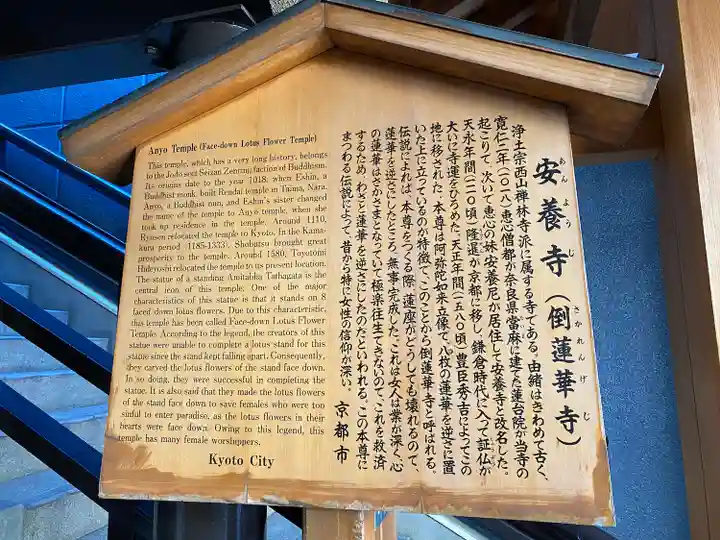 Anyo Temple (Face-down Lotus Flower Temple)
This temple, which has a very long history, belongs
to the Jodo sect Seizan Zenrinji faction of Buddhism.
Its origins date to the year 1018, when Eshin, a
Buddhist monk, built Rendai temple in Taima, Nara.
Anyo, a Buddhist nun, and Eshin's sister changed
the name of the temple to Anyo temple, when she
took up residence in the temple. Around 1110,
Ryusen relocated the temple to Kyoto. In the Kama-
kura period (1185-1333), Shobutsu brought great
prosperity to the temple. Around 1580, Toyotomi
Hideyoshi relocated the temple to its present location.
The statue of a standing Amitabha Tathagata is the
central icon of this temple. One of the major
characteristics of this statue is that it stands on 8
faced down lotus flowers. Due to this characteristic,
this temple has been called Face-down Lotus Flower
Temple. According to the legend, the creators of this
statue were unable to complete a lotus stand for this
statue since the stand kept falling apart. Consequently,
they carved the lotus flowers of the stand face down.
In so doing, they were successful in completing the
statue. It is also said that they made the lotus flowers
of the stand face down to save females who were too
sinful to enter paradise, as the lotus flowers in their
hearts were face down. Owing to this legend, this
temple has many female worshippers.
Kyoto City
安養寺(倒蓮華寺)
あんようじ
さかれんげじ
浄土宗西山禅林寺派に属する寺である。由緒はきわめて古く、
寛仁二年(一〇一八)恵心僧都が奈良県當麻に建てた蓮台院が当寺の
起こりで、次いで恵心の妹安養尼が居住して安養寺と改名した。
天永年間(一一一〇頃)隆暹が京都に移し、鎌倉時代に入って証仏が
大いに寺運をひろめた。天正年間(一五八〇頃)豊臣秀吉によってこの
地に移された。本尊は阿弥陀如来立像で、八枚の蓮華を逆さに置
いた上に立っているのが特徴で、このことから倒蓮華寺と呼ばれる。
伝説によれば、本尊をつくる際、蓮座がどうしても壊れるので、
蓮華を逆さにしたところ、無事完成した。これは女人は業が深く、心
の蓮華はさかさまとなっていて極楽往生できないので、これを救済
するため、わざと蓮華を逆さにしたのだといわれる。この本尊に
まつわる伝説によって、昔から特に女性の信仰が深い。
京都市